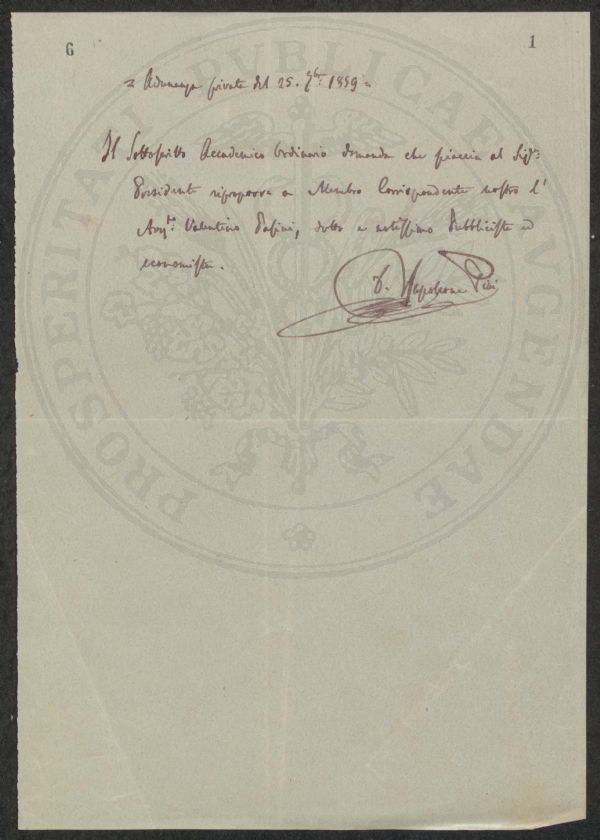 6 1
= Adunanza privata del 25. 7bre 1859 =
Il Sottoscritto Accademico Ordinario domanda che piaccia al Sigr.
Presidente riproporre a Membro Corrispondente nostro l'
Avvto. Valentino Pasini, dotto e notissimo Pubblicista ed
economista.
D. Napoleone Pini
PROSPERITATI PVBLICAE AVGENDAE